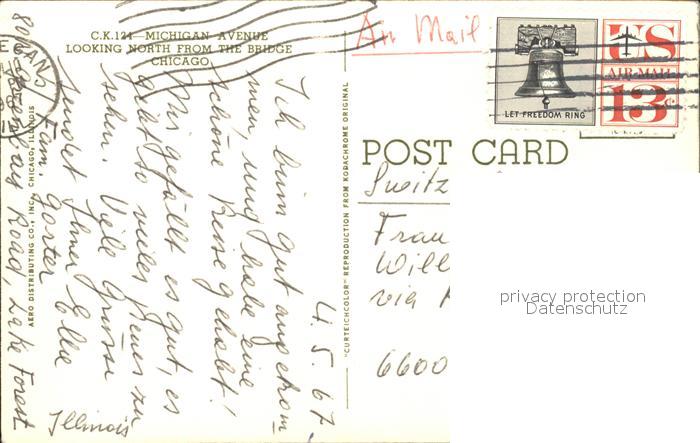 C.K.124—MICHIGAN AVENUE
LOOKING NORTH FROM THE BRIDGE
CHICAGO
Air Mail
LET FREEDOM RING
US
AIR MAIL
13c
POST CARD
4.5.67
Ich bin gut angekom=
men, und habe eine
schöne Reise gehabt!
Mir gefällt es gut, es
gibt so vieles Neues zu
sehen. Viele Grüsse
sendet Ihnen Ellie
Fam. Gorter
Road, Lake Forest
Illinois
AERO DISTRIBUTING CO., INC., CHICAGO, ILLINOIS
"CURTEICHCOLOR" REPRODUCTION FROM KODACHROME ORIGINAL
Switz
Frau
Will
via
6600
privacy protection
Datenschutz